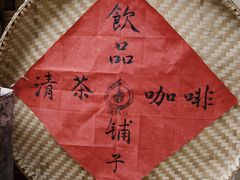 飲品铺子
清茶
咖啡